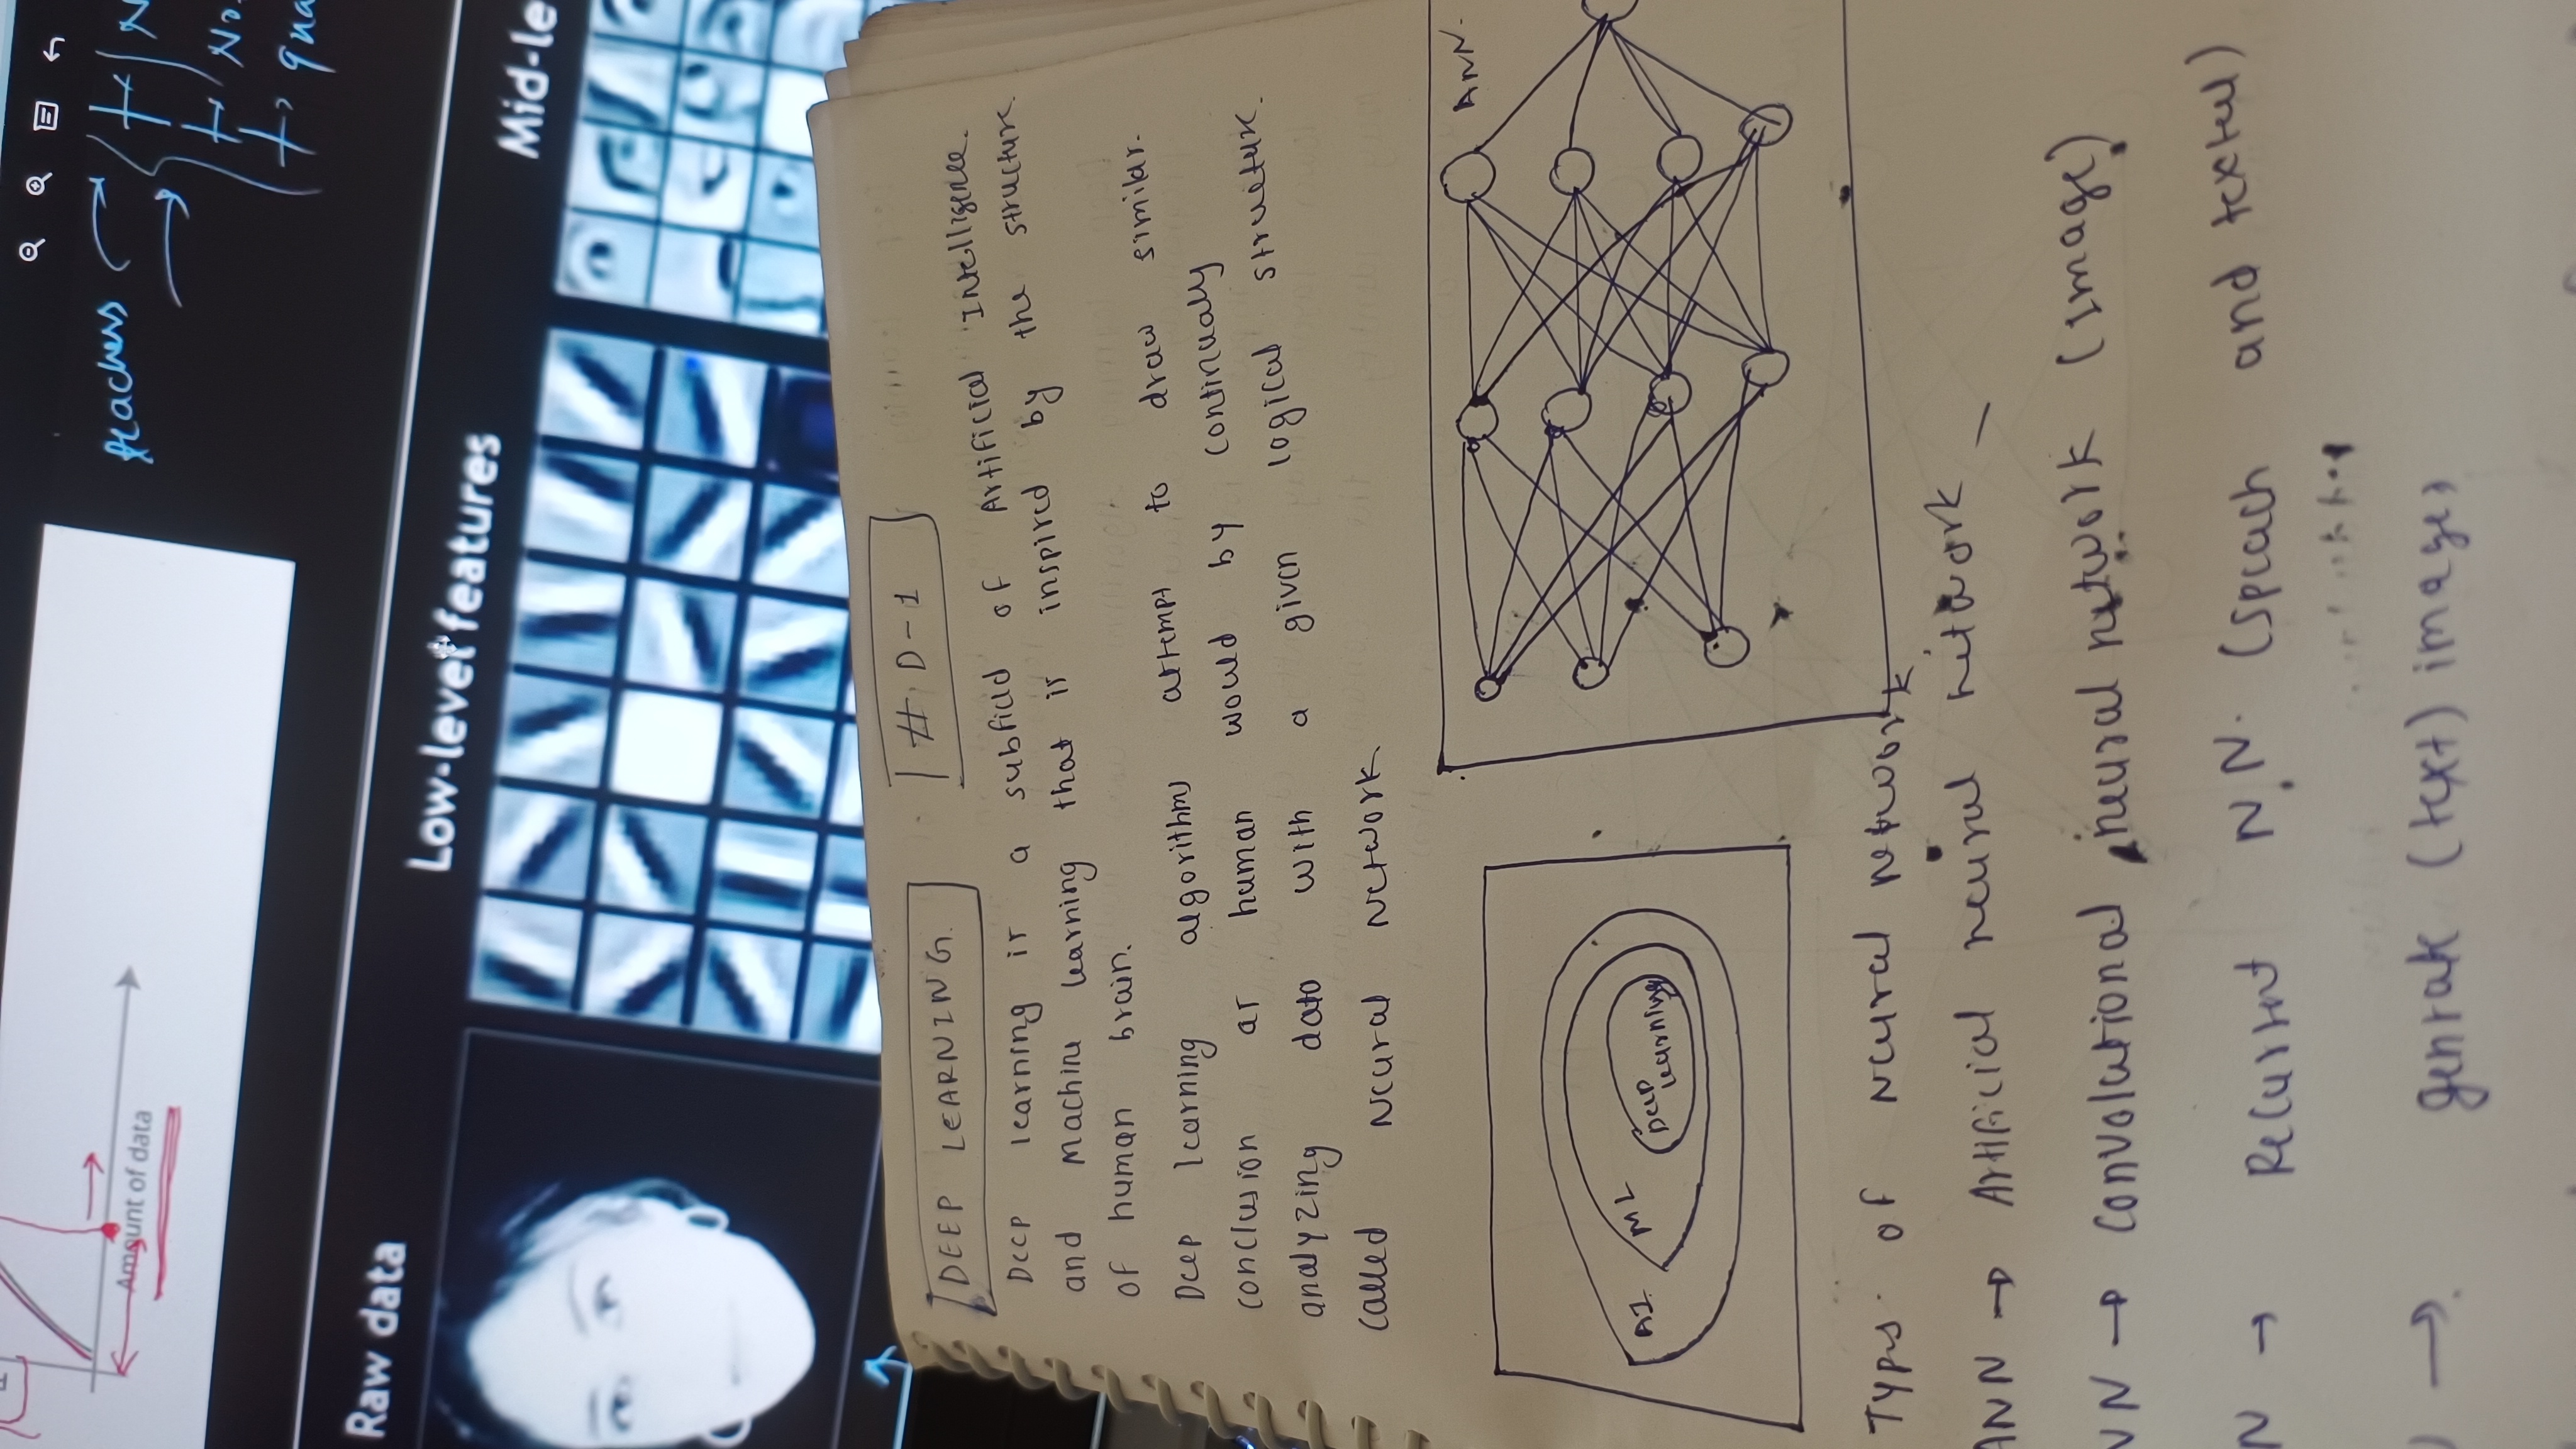 teachers
Amount of data
Raw data
Low-level features
Mid-le
DEEP LEARNING. # D-1
Deep learning is a subfield of Artificial Intelligence.
and Machine learning that is inspired by the structure
of human brain.
Deep learning algorithms attempt to draw similar.
conclusion as human would by continually
analyzing data with a given logical structure.
called Neural Network
AI
ML
Deep
learning
ANN.
Types of Neural Network
ANN → Artificial neural network –
NN → Convolutional neural network (image)
N → Recurrnt N.N. (speach and textul)
→ genrate (text) images